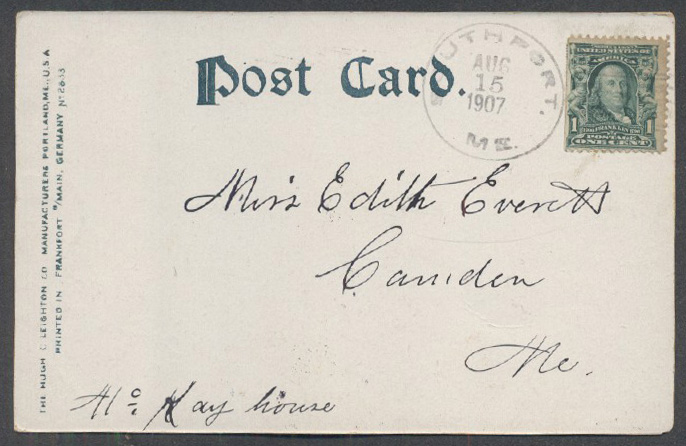 Post Card.
SOUTHPORT.
AUG
15
1907
ME.
UNITED STATES OF
AMERICA
1 FRANKLIN 1
POSTAGE
ONE CENT
Miss Edith Everett
Camden
Me.
Kay house
THE HUGH C. LEIGHTON CO. MANUFACTURERS PORTLAND, ME., U.S.A.
PRINTED IN FRANKFORT a/MAIN, GERMANY